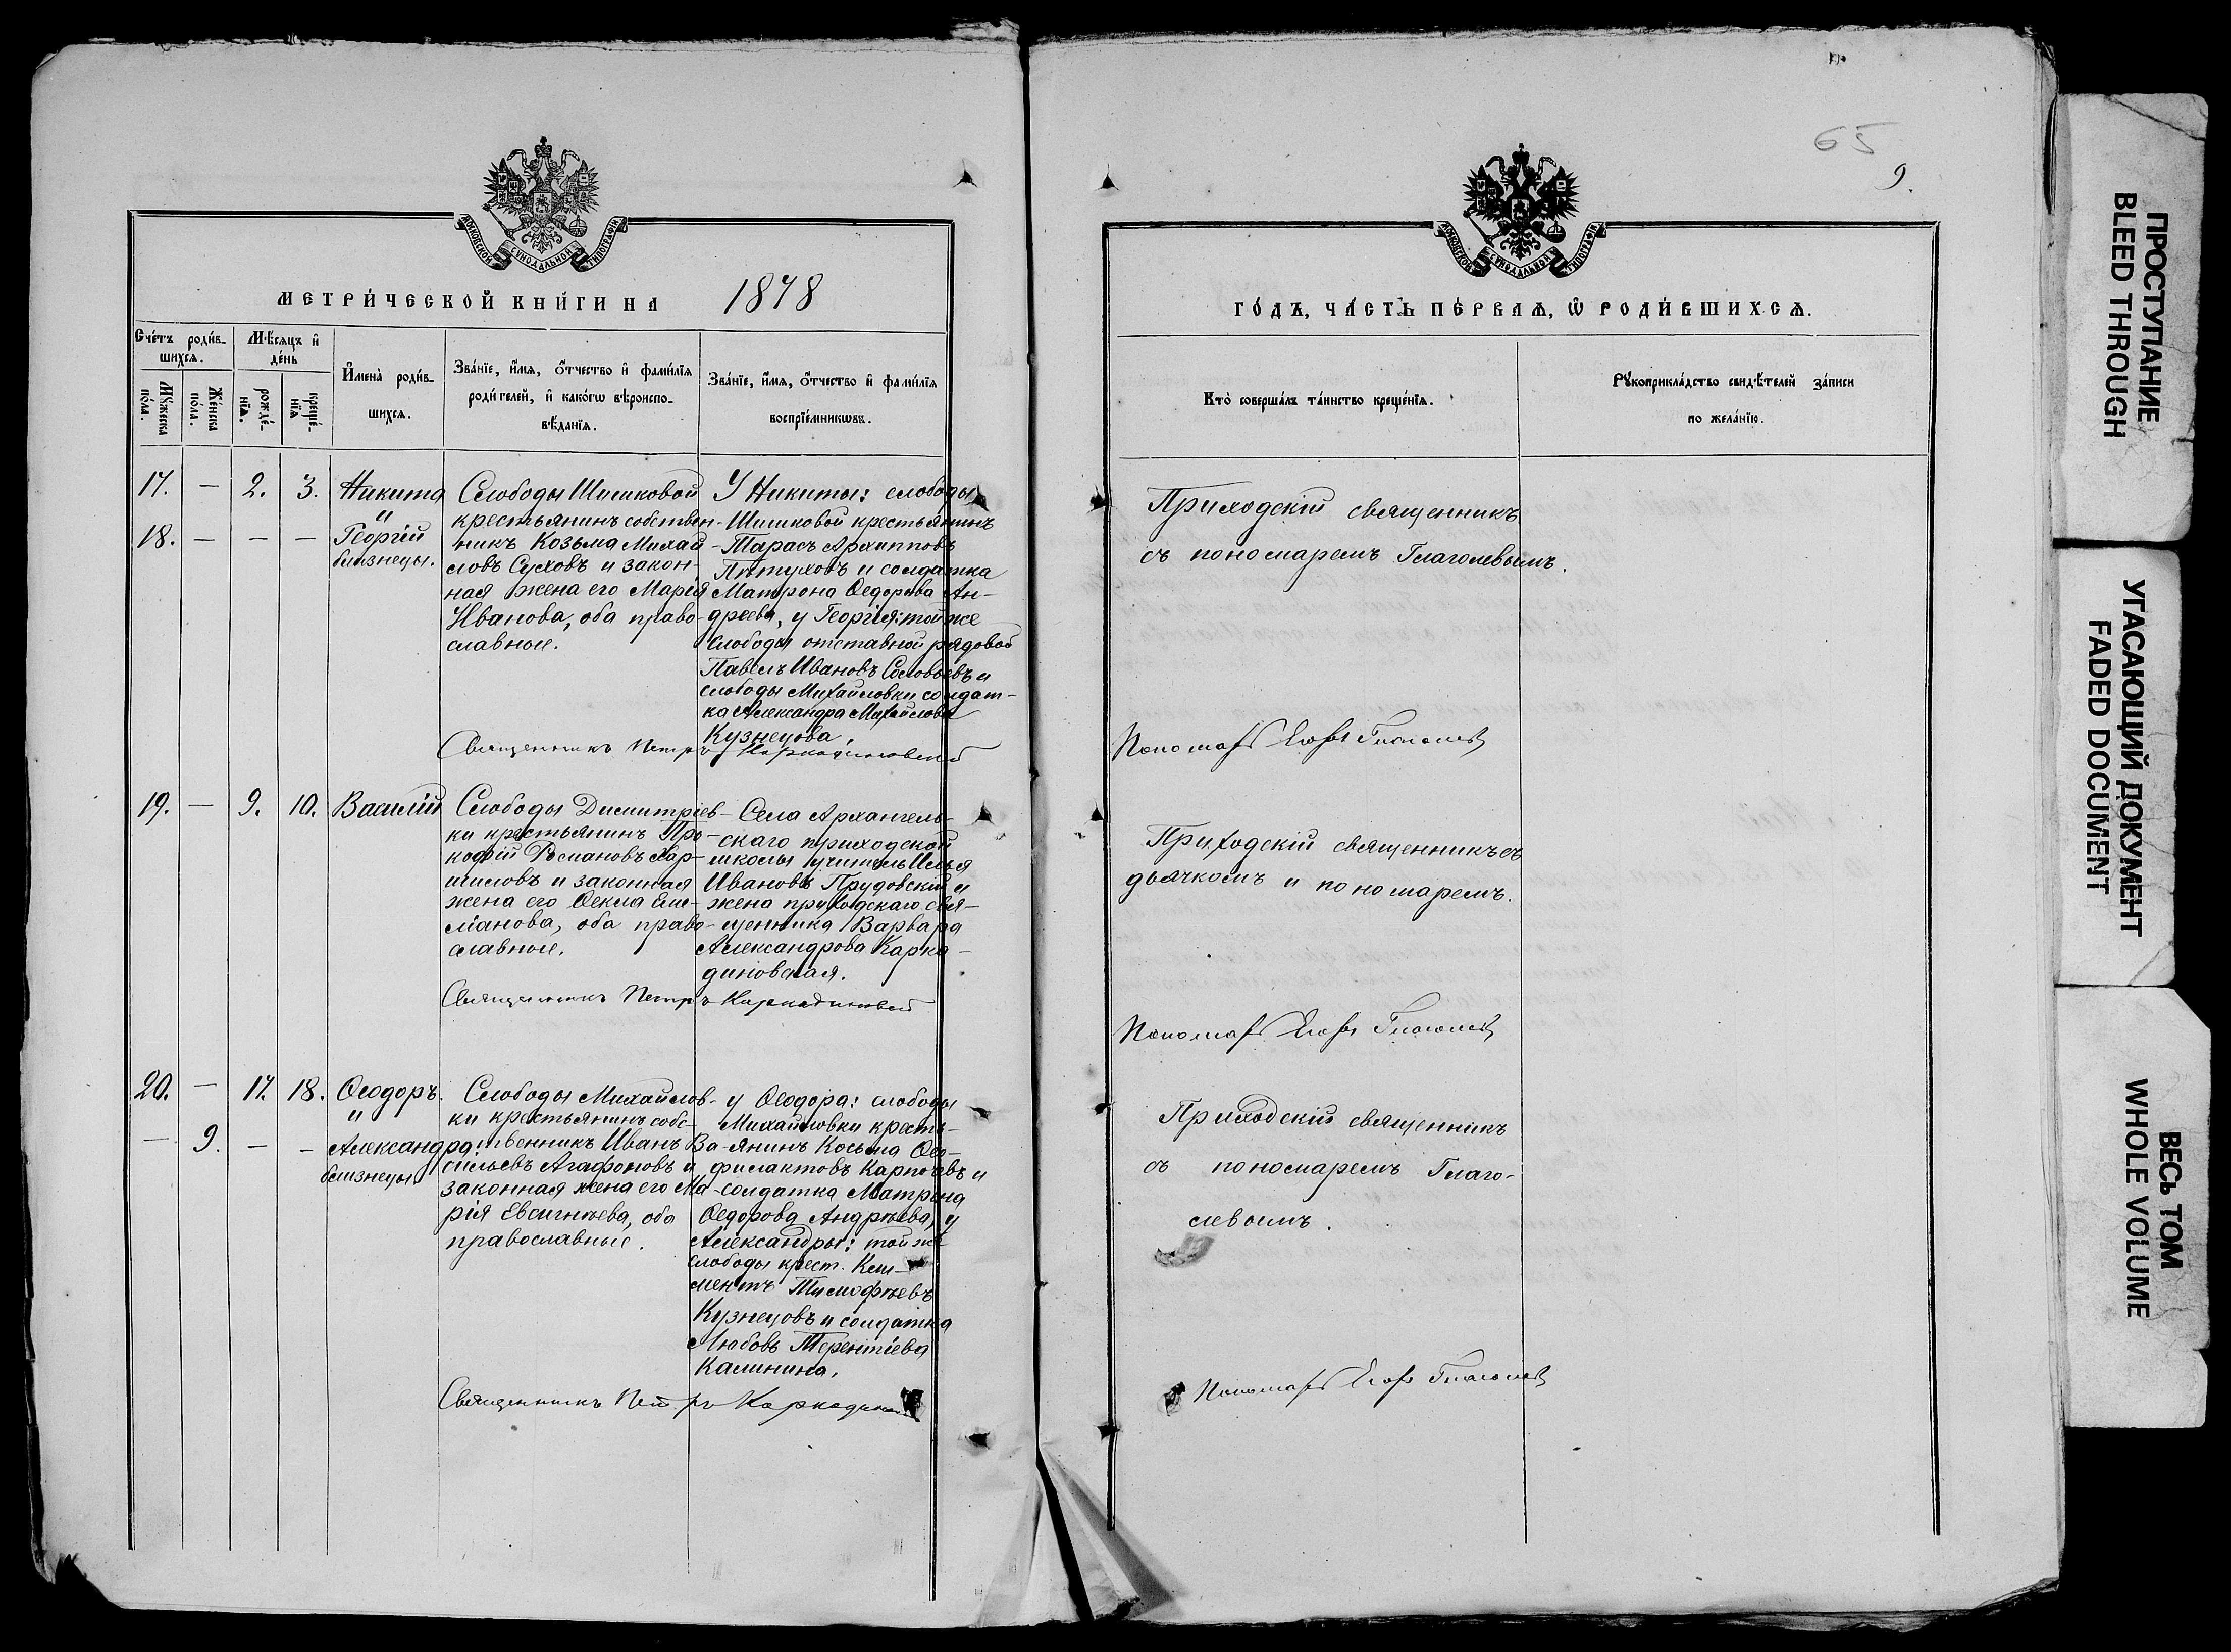 МОСКОВСКОЙ СУНОДАЛЬНОЙ ТИПОГРАФІИ
МЕТРИ́ЧЕСКОЙ КНИ́ГИ НА 1878
Сче́тъ роди́в-
шихсѧ.
Мѣ́сѧцъ и҆
де́нь
Мꙋ́жеска
по́ла.
Же́нска
по́ла.
рожде́-
нїѧ.
креще́-
нїѧ
И҆мена̀ роди́в-
шихсѧ.
Зва́нїе, и҆́мѧ, ѻ҆́тчество и҆ фами́лїѧ
роди́телей, и҆ како́гѡ вѣроиспо-
вѣ́данїѧ.
Зва́нїе, и҆́мѧ, ѻ҆́тчество и҆ фами́лїѧ
воспрїе́мникѡвъ.
17. — 2. 3. Никита
и
18. — — — Георгій
близнецы.
Слободы Шишковой
крестьянинъ собствен-
никъ Козьма Михай-
ловъ Суховъ и закон-
ная жена его Марія
Иванова, оба право-
славные.
У Никиты: слободы
Шишковой крестьянинъ
Тарасъ Архипповъ
Пѣтуховъ и солдатка
Матрона Ѳедорова Ан-
дреева, у Георгія: той же
слободы отставной рядовой
Павелъ Ивановъ Соловьевъ и
слободы Михайловки солдат-
ка Александра Михайлова
Кузнецова.
Священникъ Петръ Каркадиновский
19. — 9. 10. Василій
Слободы Димитріев-
ки крестьянинъ Про-
кофій Романовъ Хар-
ламовъ и законная
жена его Ѳекла Еме-
ліанова, оба право-
славные.
Села Архангель-
скаго приходской
школы учитель Илья
Ивановъ Прудовскій и
жена приходскаго свя-
щенника Варвара
Александрова Карка-
диновская.
Священникъ Петръ Каркадиновский
20. — 17. 18. Ѳеодоръ.
и
— 9. — — Александра
близнецы
Слободы Михайлов-
ки крестьянинъ собс-
твенникъ Иванъ Ва-
сильевъ Агафоновъ и
законная жена его Ма-
рія Евсигнѣева, оба
православные.
у Ѳеодора: слободы
Михайловки кресть-
янинъ Косьма Ѳео-
филактовъ Карпочевъ и
солдатка Матрона
Ѳедорова Андрѣева, у
Александры: той же
слободы крест. Кли-
ментъ Тимофѣевъ
Кузнецовъ и солдатка
Любовь Терентіева
Калинина.
Священникъ Петръ
65
9.
МОСКОВСКОЙ СУНОДАЛЬНОЙ ТИПОГРАФІИ
ГО́ДЪ, ЧА́СТЬ ПЕ́РВАѦ, Ѡ҆ РОДИ́ВШИХСѦ.
Кто̀ соверша́лъ та́инство креще́нїѧ.
Рꙋкоприкла́дство свидѣ́телей за́писи
по жела́нїю.
Приходскій священникъ
съ пономаремъ Глаголевымъ.
Пономарь Егоръ Глаголевъ
Приходскій священникъ съ
дьячкомъ и пономаремъ.
Пономарь Егоръ Глаголевъ
Приходскій священникъ
съ пономаремъ Глаго-
левымъ.
Пономарь Егоръ Глаголевъ
ПРОСТУПАНИЕ
BLEED THROUGH
УГАСАЮЩИЙ ДОКУМЕНТ
FADED DOCUMENT
ВЕСЬ ТОМ
WHOLE VOLUME